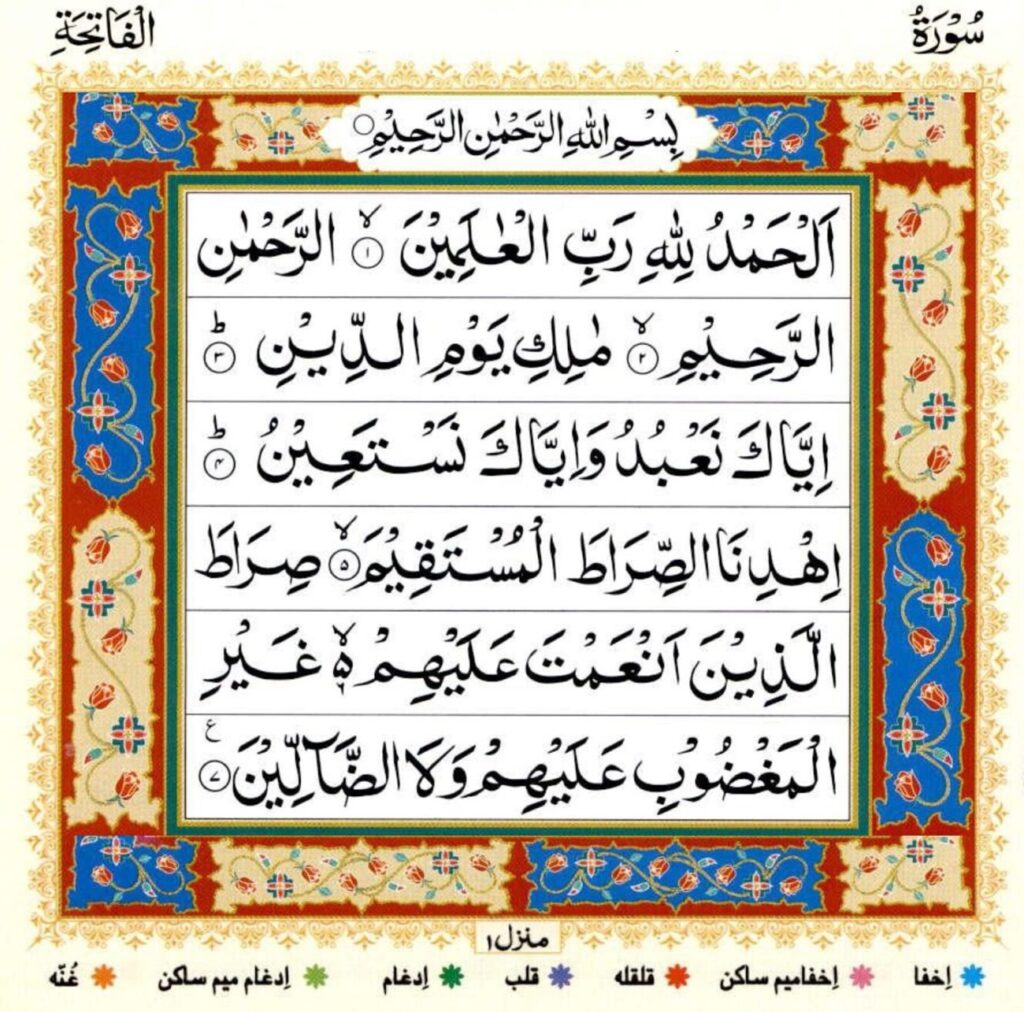 سُوْرَةُ الْفَاتِحَةِ
بِسْمِ اللّٰهِ الرَّحْمٰنِ الرَّحِيْمِ ○
اَلْحَمْدُ لِلّٰهِ رَبِّ الْعٰلَمِيْنَ ۙ﴿۱﴾ الرَّحْمٰنِ
الرَّحِيْمِ ۙ﴿۲﴾ مٰلِكِ يَوْمِ الدِّيْنِ ؕ﴿۳﴾
اِيَّاكَ نَعْبُدُ وَاِيَّاكَ نَسْتَعِيْنُ ؕ﴿۴﴾
اِهْدِنَا الصِّرَاطَ الْمُسْتَقِيْمَ ۙ﴿۵﴾ صِرَاطَ
الَّذِيْنَ اَنْعَمْتَ عَلَيْهِمْ ۙ۬ۦ غَيْرِ
الْمَغْضُوْبِ عَلَيْهِمْ وَلَا الضَّآلِّيْنَ ﴿۷﴾ ع
منزل ۱
اِخفا اِخفامیم ساکن قلقله قلب اِدغام اِدغام میم ساکن غُنّه